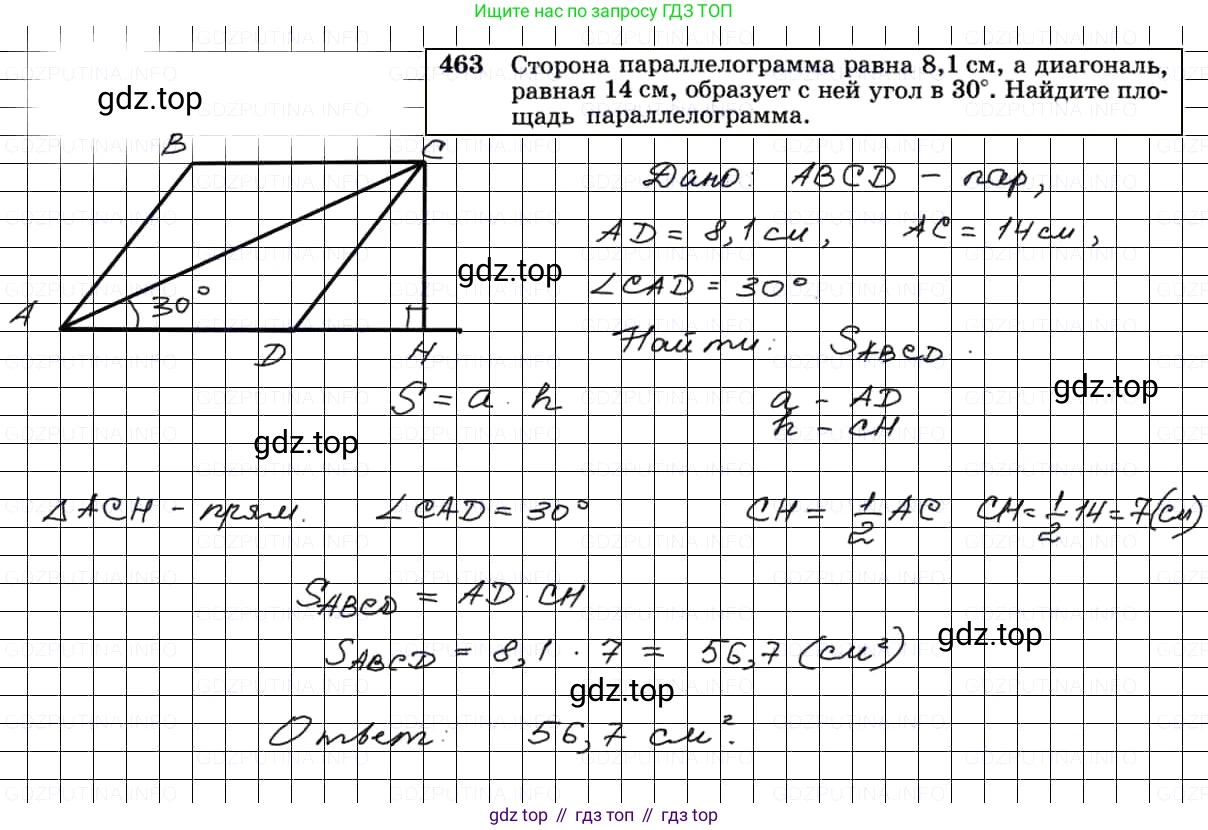 Ищите нас по запросу ГДЗ ТОП
463 Сторона параллелограмма равна 8,1 см, а диагональ,
равная 14 см, образует с ней угол в 30°. Найдите пло-
щадь параллелограмма.
gdz.top
B
C
Дано: ABCD – пар,
AD = 8,1 см, AC = 14 см,
gdz.top
∠CAD = 30°.
30°
A
D
H
Найти: S_ABCD.
gdz.top
S = a · h
a – AD
h – CH
gdz.top
△ACH – прям. ∠CAD = 30° CH = 1/2 AC CH = 1/2 · 14 = 7 (см)
S_ABCD = AD · CH
gdz.top
S_ABCD = 8,1 · 7 = 56,7 (см²)
gdz.top
Ответ: 56,7 см².
gdz.top // гдз топ // гдз top
GDZPUTINA.INFO